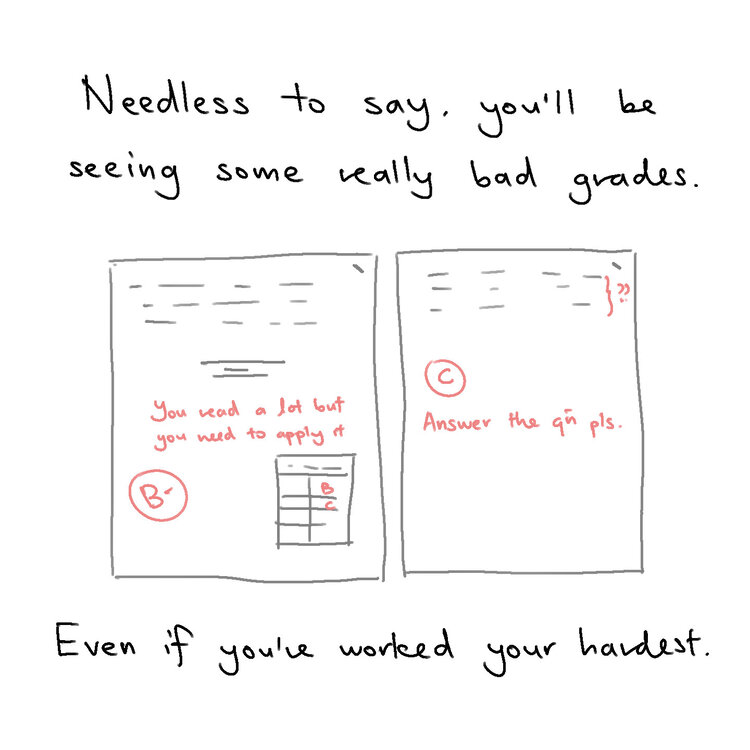 Needless to say, you'll be
seeing some really bad grades.
You read a lot but
you need to apply it
B-
B
C
}??
C
Answer the qñ pls.
Even if you've worked your hardest.